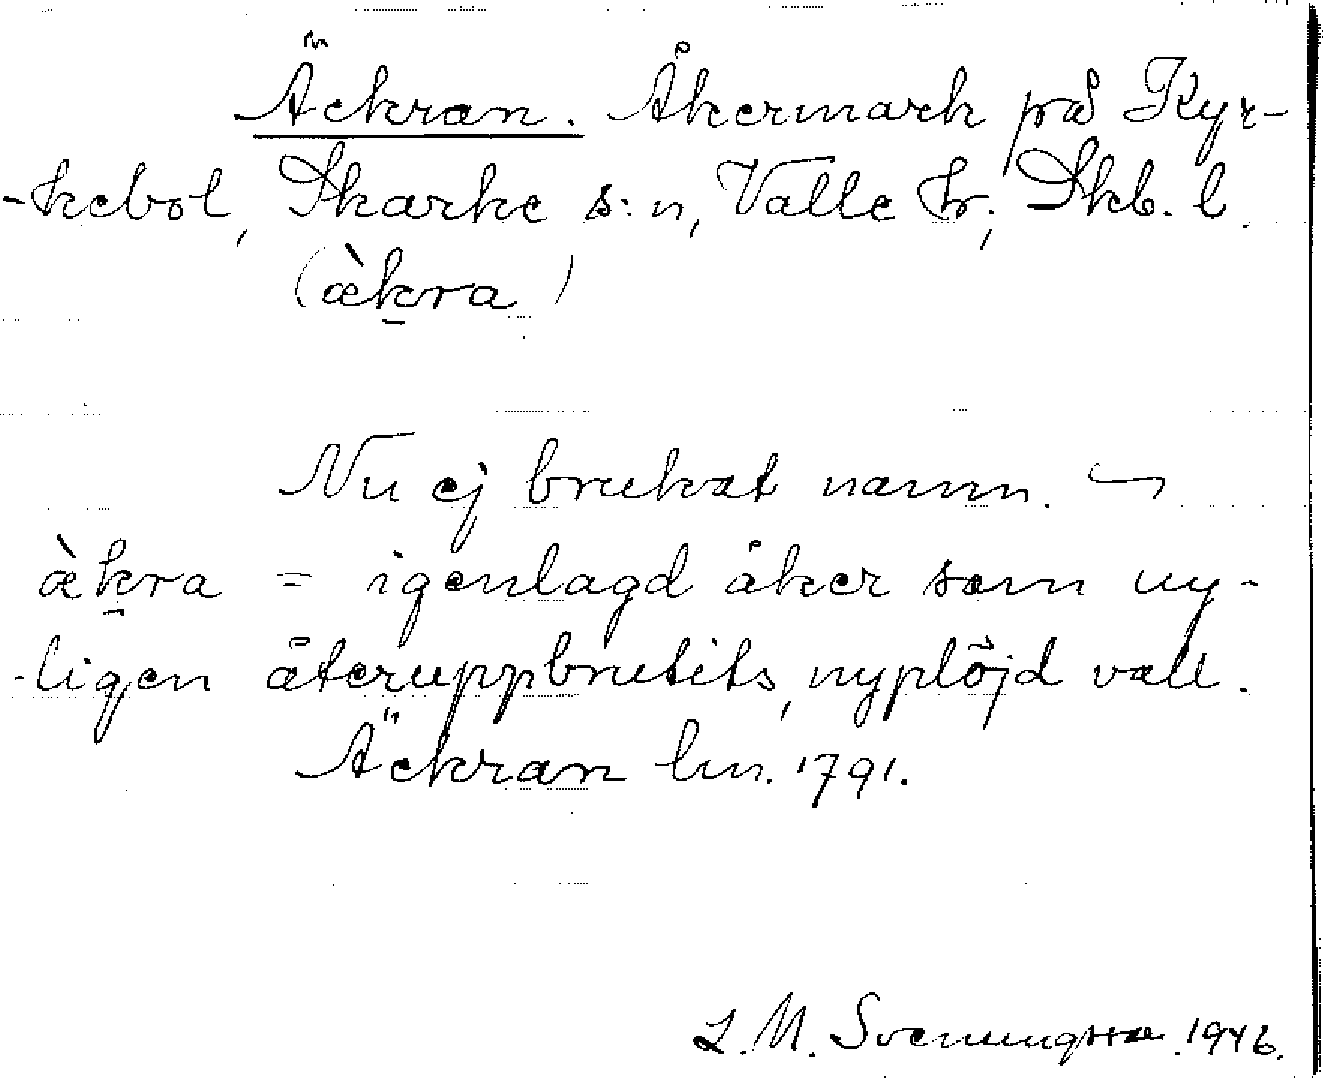 Äckran. Åkermark på Kyr-
-kebol, Skarke s:n, Valle hr, Skb. l.
(àḵra)
Nu ej brukat namn.
àḵra = igenlagd åker som ny-
-ligen återuppbrutits, nyplöjd vall.
Äckran lm. 1791.
L. M. Svenungsson. 1946.